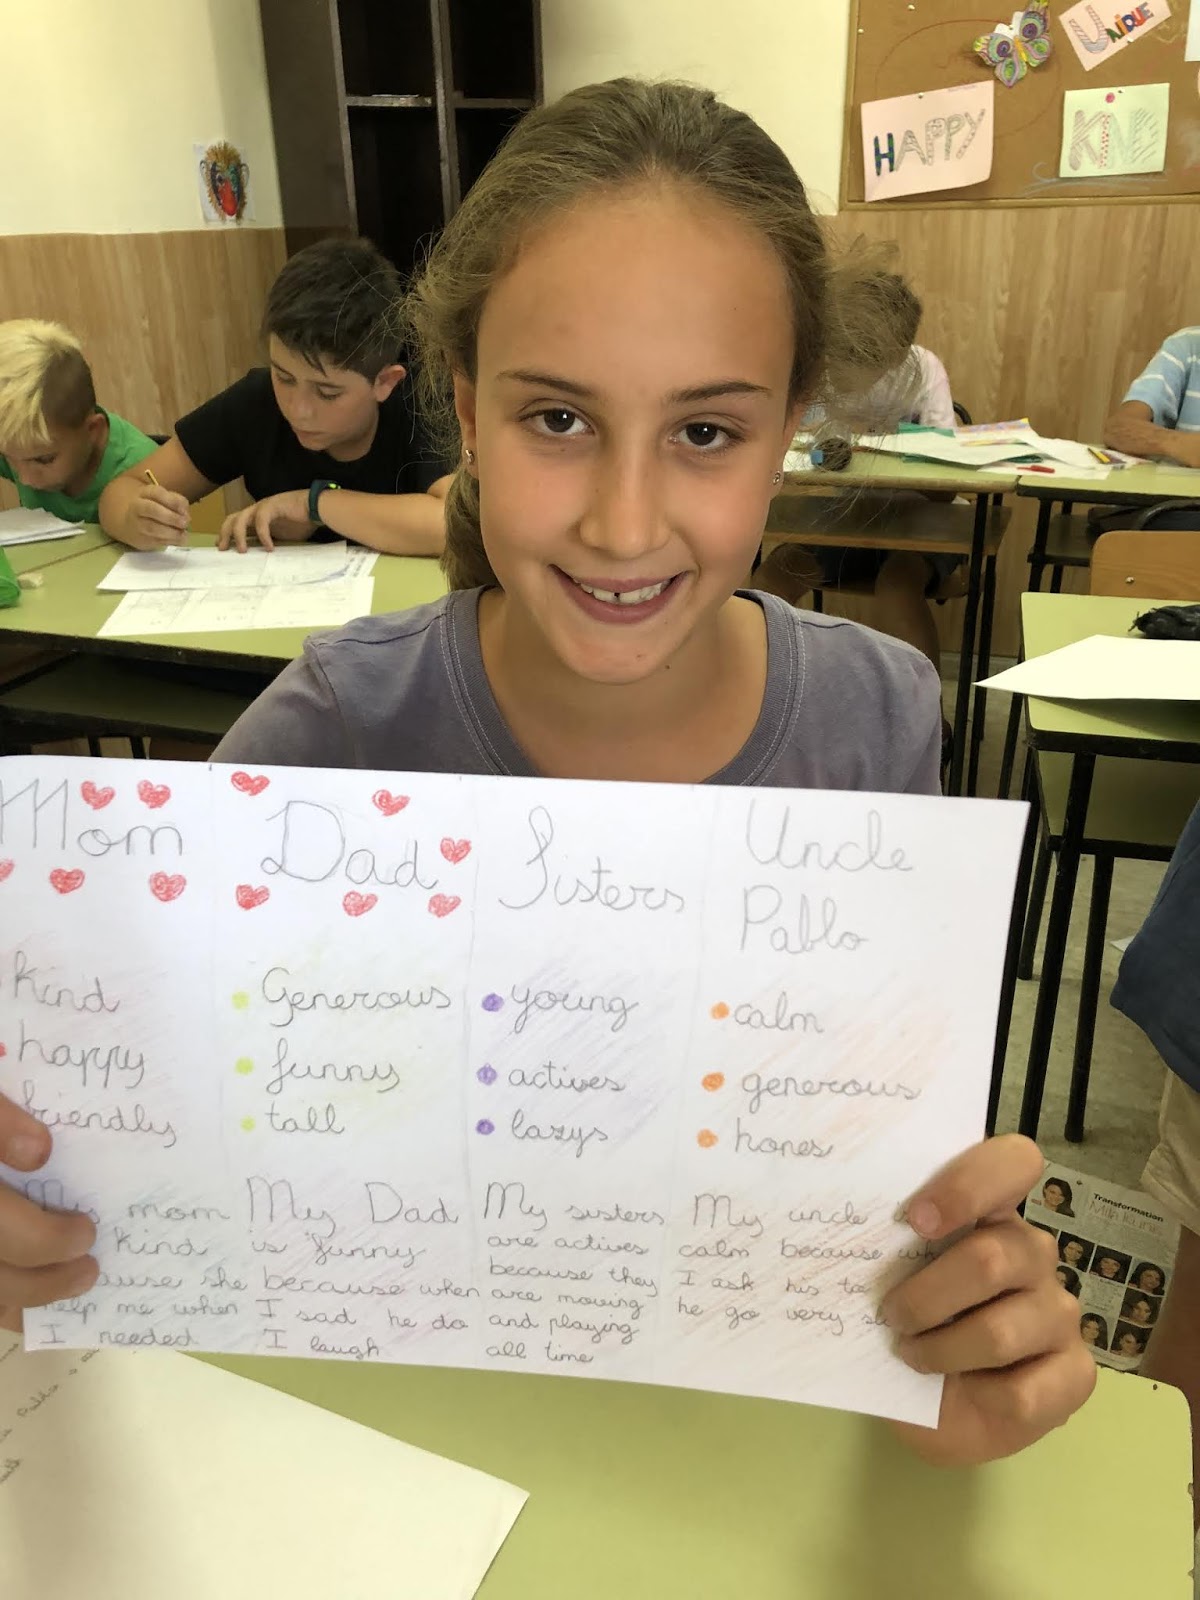 UNIQUE
HAPPY
KIN
Mom
kind
happy
friendly
My mom
kind
she
help me when
I needed
Dad
Generous
funny
tall
My Dad
is funny
because when
I sad he do
I laugh
Sisters
young
actives
lazys
My sisters
are actives
because they
are moving
and playing
all time
Uncle
Pablo
calm
generous
hones
My uncle
calm because
I ask his to
he go very
Transformation
Mila Kunis